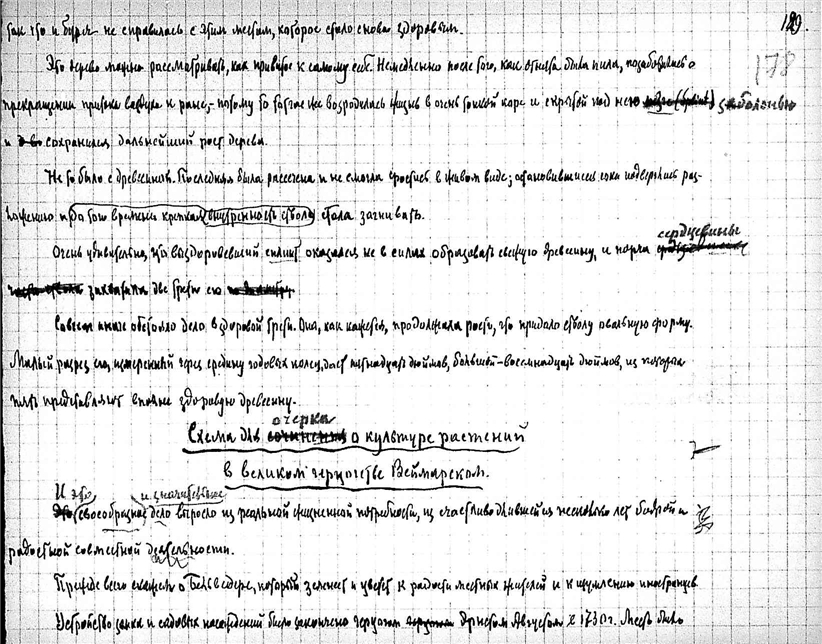 129.
178
так что и буря не справилась с этим местом, которое стало снова здоровым.
Это дерево можно рассматривать, как привитое к самому себе. Немедленно после того, как отнята была пила, позаботились о
прекращении притока воздуха к ране;- потому то тотчас же возродилась жизнь в очень тонкой коре и скрытой под нею заболонью
и сохранился дальнейший рост дерева.
Не то было с древесиной. Последняя была рассечена и не смогла срастись в живом виде; остановившиеся соки подверглись раз-
ложению и до того времени крепкая внутренность ствола стала загнивать.
сердцевины
Очень удивительно, что выздоровевший сплинт оказался не в силах образовать свежую древесину, и порча
захватила две трети ею
Совсем иначе обстояло дело в здоровой трети. Она, как кажется, продолжала расти, что придало стволу овальную форму.
Малый разрез его, измеренный через средину годовых колец, дает пятнадцать дюймов, большой - восемнадцать дюймов, из которых
пять представляют вполне здоровую древесину.
очерка
Схема для сочинения о культуре растений
в великом герцогстве Веймарском.
И это и значительное
своеобразное дело выросло из реальной жизненной потребности, из счастливо длившейся несколько лет бодрой и
радостной совместной деятельности.
Прежде всего скажем о Бельведере, который зеленеет и цветет к радости местных жителей и к изумлению иностранцев
Устройство замка и садовых насаждений было закончено герцогом Эрнстом Августом в 1730 г. Лес был